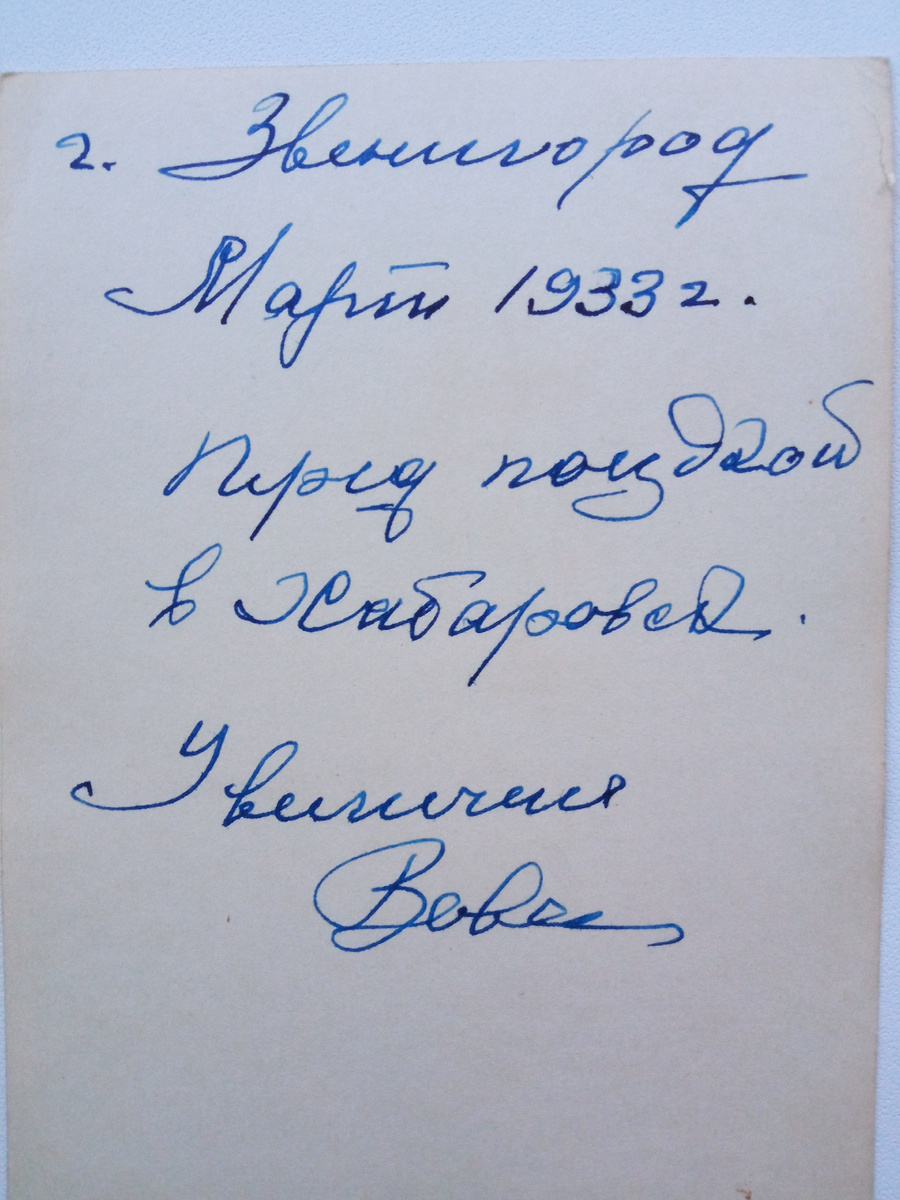 г. Звенигород
Март 1933 г.
Перед поездкой
в Хабаровск.
Увеличил
Вова